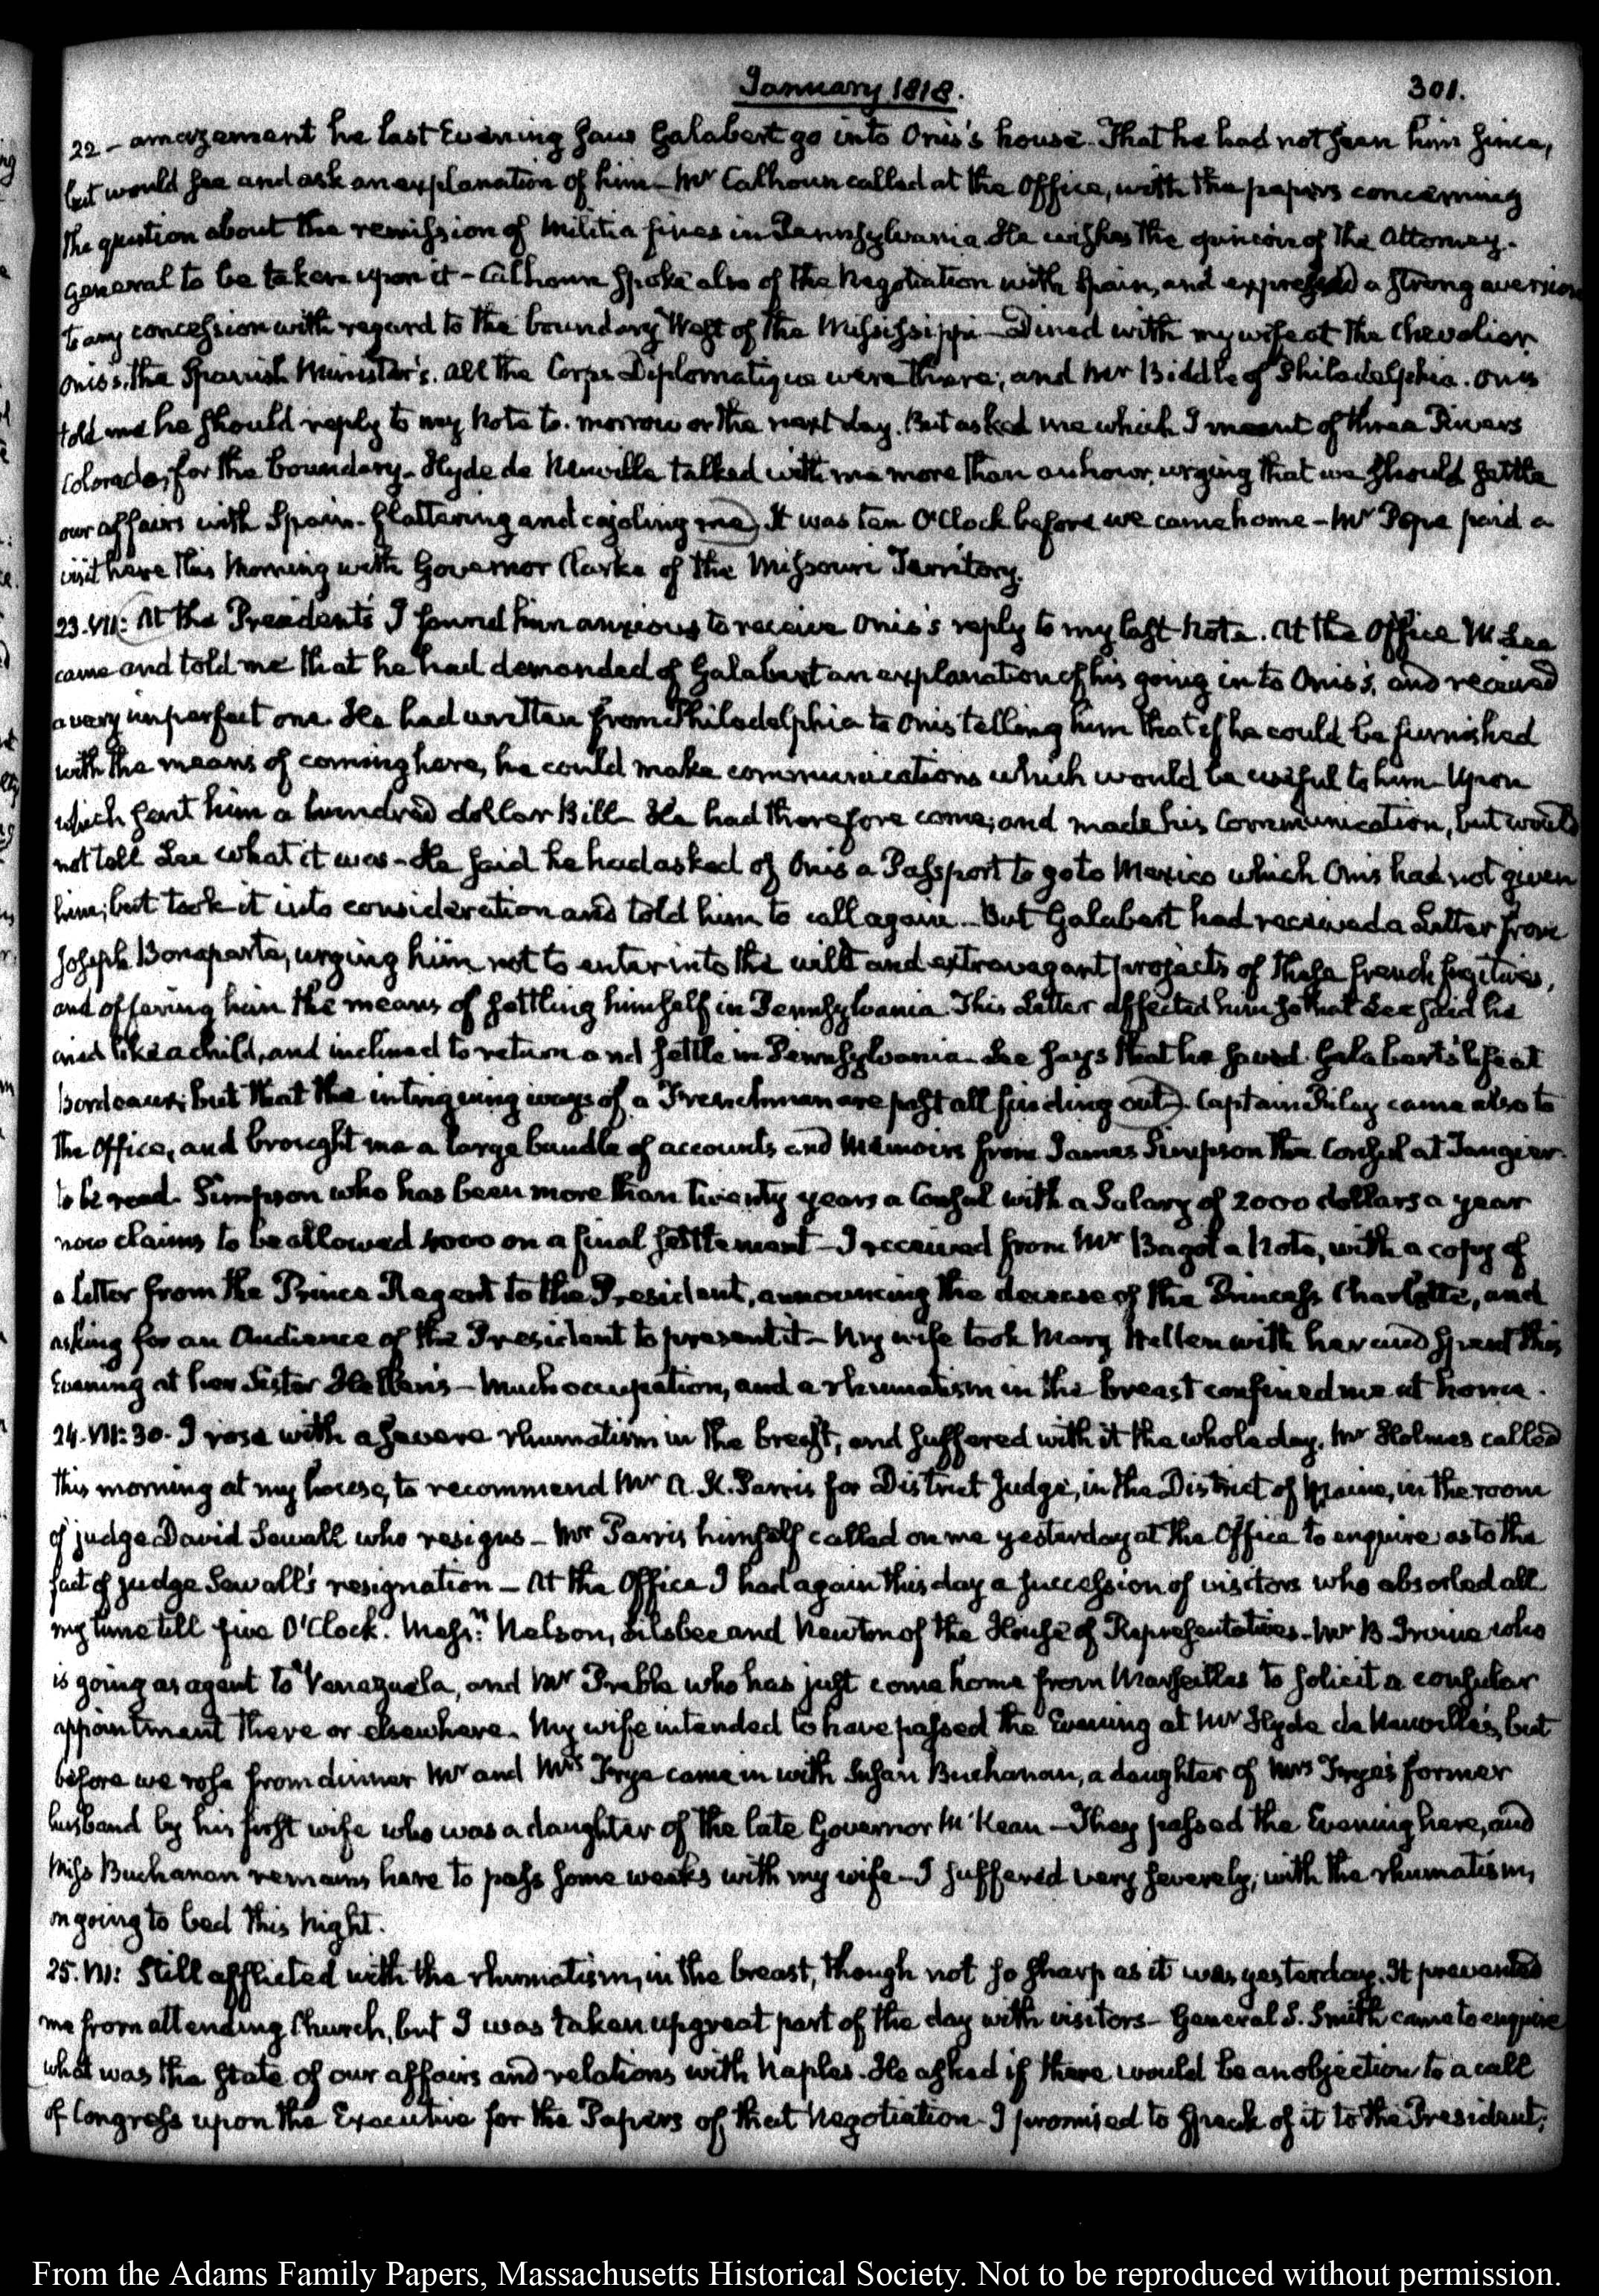 January 1818.
301.
22 – amazement he last Evening saw Galabert go into Onis's house. That he had not seen him since,
but would see and ask an explanation of him – Mr Calhoun called at the Office, with the papers concerning
the question about the remission of Militia fines in Pennsylvania. He wishes the opinion of the Attorney-
General to be taken upon it – Calhoun spoke also of the Negotiation with Spain, and expressed a strong aversion
to any concession with regard to the boundary West of the Mississippi – Dined with my wife at the Chevalier
Onis's, the Spanish Minister's. All the Corps Diplomatique were there; and Mr Biddle of Philadelphia. Onis
told me he should reply to my Note to-morrow or the next day. But asked me which I meant of three Rivers
Colorado, for the boundary – Hyde de Neuville talked with me more than an hour, urging that we should settle
our affairs with Spain – flattering and cajoling me. It was ten O'Clock before we came home – Mr Pope paid a
visit here this Morning with Governor Clarke of the Missouri Territory.
23. VII: At the President's I found him anxious to receive Onis's reply to my last Note. At the Office W. Lee
came and told me that he had demanded of Galabert an explanation of his going into Onis's, and received
a very imperfect one. He had written from Philadelphia to Onis telling him that if he could be furnished
with the means of coming here, he could make communications which would be useful to him – Upon
which sent him a hundred dollar Bill – He had therefore come, and made his Communication, but would
not tell Lee what it was – He said he had asked of Onis a Passport to go to Mexico which Onis had not given
him; but took it into consideration and told him to call again – But Galabert had received a Letter from
Joseph Bonaparte, urging him not to enter into the wild and extravagant projects of these french fugitives,
and offering him the means of settling himself in Pennsylvania. This Letter affected him so that Lee said he
cried like a child, and inclined to return and settle in Pennsylvania – Lee says that he saved Galabert's life at
Bordeaux; but that the intriguing ways of a Frenchman are past all finding out. Captain Riley came also to
the Office, and brought me a large bundle of accounts and Memoirs from James Simpson the Consul at Tangier
to be read. Simpson who has been more than twenty years a Consul with a Salary of 2000 dollars a year
now claims to be allowed 4000 on a final settlement – I received from Mr Bagot a Note, with a copy of
a letter from the Prince Regent to the President, announcing the decease of the Princess Charlotte, and
asking for an Audience of the President to present it – My wife took Mary Hellen with her and spent this
Evening at her Sister Hellen's – Much occupation, and a rhumatism in the breast confined me at home.
24. VII: 30. I rose with a severe rhumatism in the breast, and suffered with it the whole day. Mr Holmes called
this morning at my house, to recommend Mr A. K. Parris for District Judge, in the District of Maine, in the room
of judge David Sewall who resigns – Mr Parris himself called on me yesterday at the Office to enquire as to the
fact of judge Sewall's resignation – At the Office I had again this day a succession of visitors who absorbed all
my time till five O'Clock. Messrs: Nelson, Silsbee and Newton of the House of Representatives – Mr B. Irvine who
is going as agent to Venezuela, and Mr Preble who has just come home from Marseilles to solicit a consular
appointment there or elsewhere – My wife intended to have passed the Evening at Mr Hyde de Neuville's, but
before we rose from dinner Mr and Mrs Frye came in with Susan Buchanan, a daughter of Mrs Frye's former
husband by his first wife who was a daughter of the late Governor McKean – They passed the Evening here, and
Miss Buchanan remains here to pass some weeks with my wife – I suffered very severely, with the rhumatism,
on going to bed this Night.
25. VII: Still afflicted with the rhumatism, in the breast, though not so sharp as it was yesterday. It prevented
me from attending Church, but I was taken up great part of the day with visitors – General S. Smith came to enquire
what was the state of our affairs and relations with Naples. He asked if there would be an objection to a call
of Congress upon the Executive for the Papers of that Negotiation – I promised to speak of it to the President;
From the Adams Family Papers, Massachusetts Historical Society. Not to be reproduced without permission.